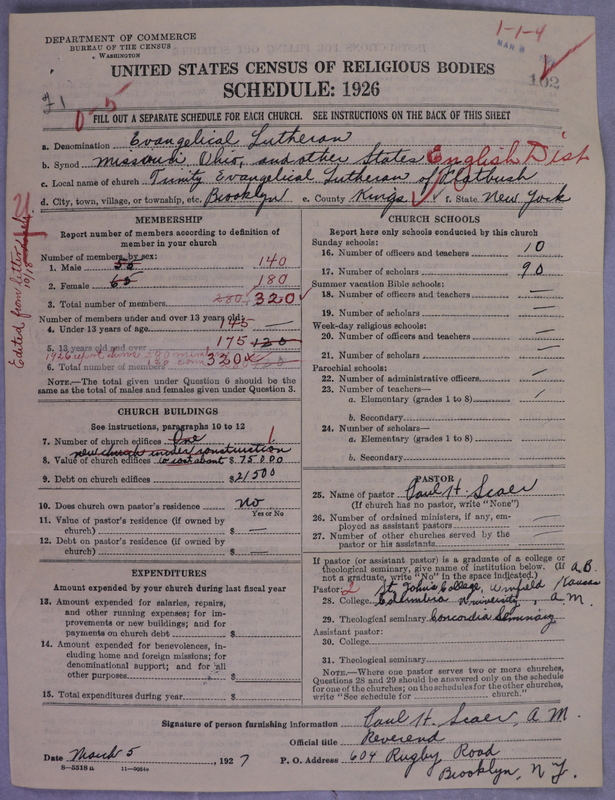 DEPARTMENT OF COMMERCE
BUREAU OF THE CENSUS
WASHINGTON
1-1-4
MAR 8
102
UNITED STATES CENSUS OF RELIGIOUS BODIES
SCHEDULE: 1926
0-5
FILL OUT A SEPARATE SCHEDULE FOR EACH CHURCH. SEE INSTRUCTIONS ON THE BACK OF THIS SHEET
a. Denomination Evangelical Lutheran
b. Synod Missouri, Ohio, and other States English Dist
c. Local name of church Trinity Evangelical Lutheran of Flatbush
d. City, town, village, or township, etc. Brooklyn e. County Kings f. State New York
Edited from letter dated 10/18
MEMBERSHIP
Report number of members according to definition of
member in your church
Number of members by sex:
1. Male 55 140
2. Female 65 180
3. Total number of members 280 320
Number of members under and over 13 years old:
4. Under 13 years of age 145
5. 13 years old and over 175 120
6. Total number of members 320
NOTE.—The total given under Question 6 should be the
same as the total of males and females given under Question 3.
CHURCH BUILDINGS
See instructions, paragraphs 10 to 12
7. Number of church edifices One 1
new church under construction
8. Value of church edifices to cost about $ 75000
9. Debt on church edifices $ 21500
10. Does church own pastor's residence No
Yes or No
11. Value of pastor's residence (if owned by
church) $ —
12. Debt on pastor's residence (if owned by
church) $ —
EXPENDITURES
Amount expended by your church during last fiscal year
13. Amount expended for salaries, repairs,
and other running expenses; for im-
provements or new buildings; and for
payments on church debt $
14. Amount expended for benevolences, in-
cluding home and foreign missions; for
denominational support; and for all
other purposes $
15. Total expenditures during year $
CHURCH SCHOOLS
Report here only schools conducted by this church
Sunday schools:
16. Number of officers and teachers 10
17. Number of scholars 90
Summer vacation Bible schools:
18. Number of officers and teachers —
19. Number of scholars —
Week-day religious schools:
20. Number of officers and teachers —
21. Number of scholars —
Parochial schools:
22. Number of administrative officers —
23. Number of teachers—
a. Elementary (grades 1 to 8)
b. Secondary
24. Number of scholars—
a. Elementary (grades 1 to 8)
b. Secondary
PASTOR
25. Name of pastor Paul H. Scaer
(If church has no pastor, write "None")
26. Number of ordained ministers, if any, em-
ployed as assistant pastors —
27. Number of other churches served by the
pastor or his assistants —
If pastor (or assistant pastor) is a graduate of a college or
theological seminary, give name of institution below. (If
not a graduate, write "No" in the space indicated.) A.B.
Pastor: 2 St. John's College, Winfield Kansas
28. College Columbia University, A.M.
29. Theological seminary Concordia Seminary
Assistant pastor:
30. College
31. Theological seminary
NOTE.—Where one pastor serves two or more churches,
Questions 28 and 29 should be answered only on the schedule
for one of the churches; on the schedules for the other churches,
write "See schedule for church."
Signature of person furnishing information Paul H. Scaer, A.M.
Official title Reverend
Date March 5, 1927 P. O. Address 604 Rugby Road
8-5518a 11-9084a Brooklyn, N.Y.